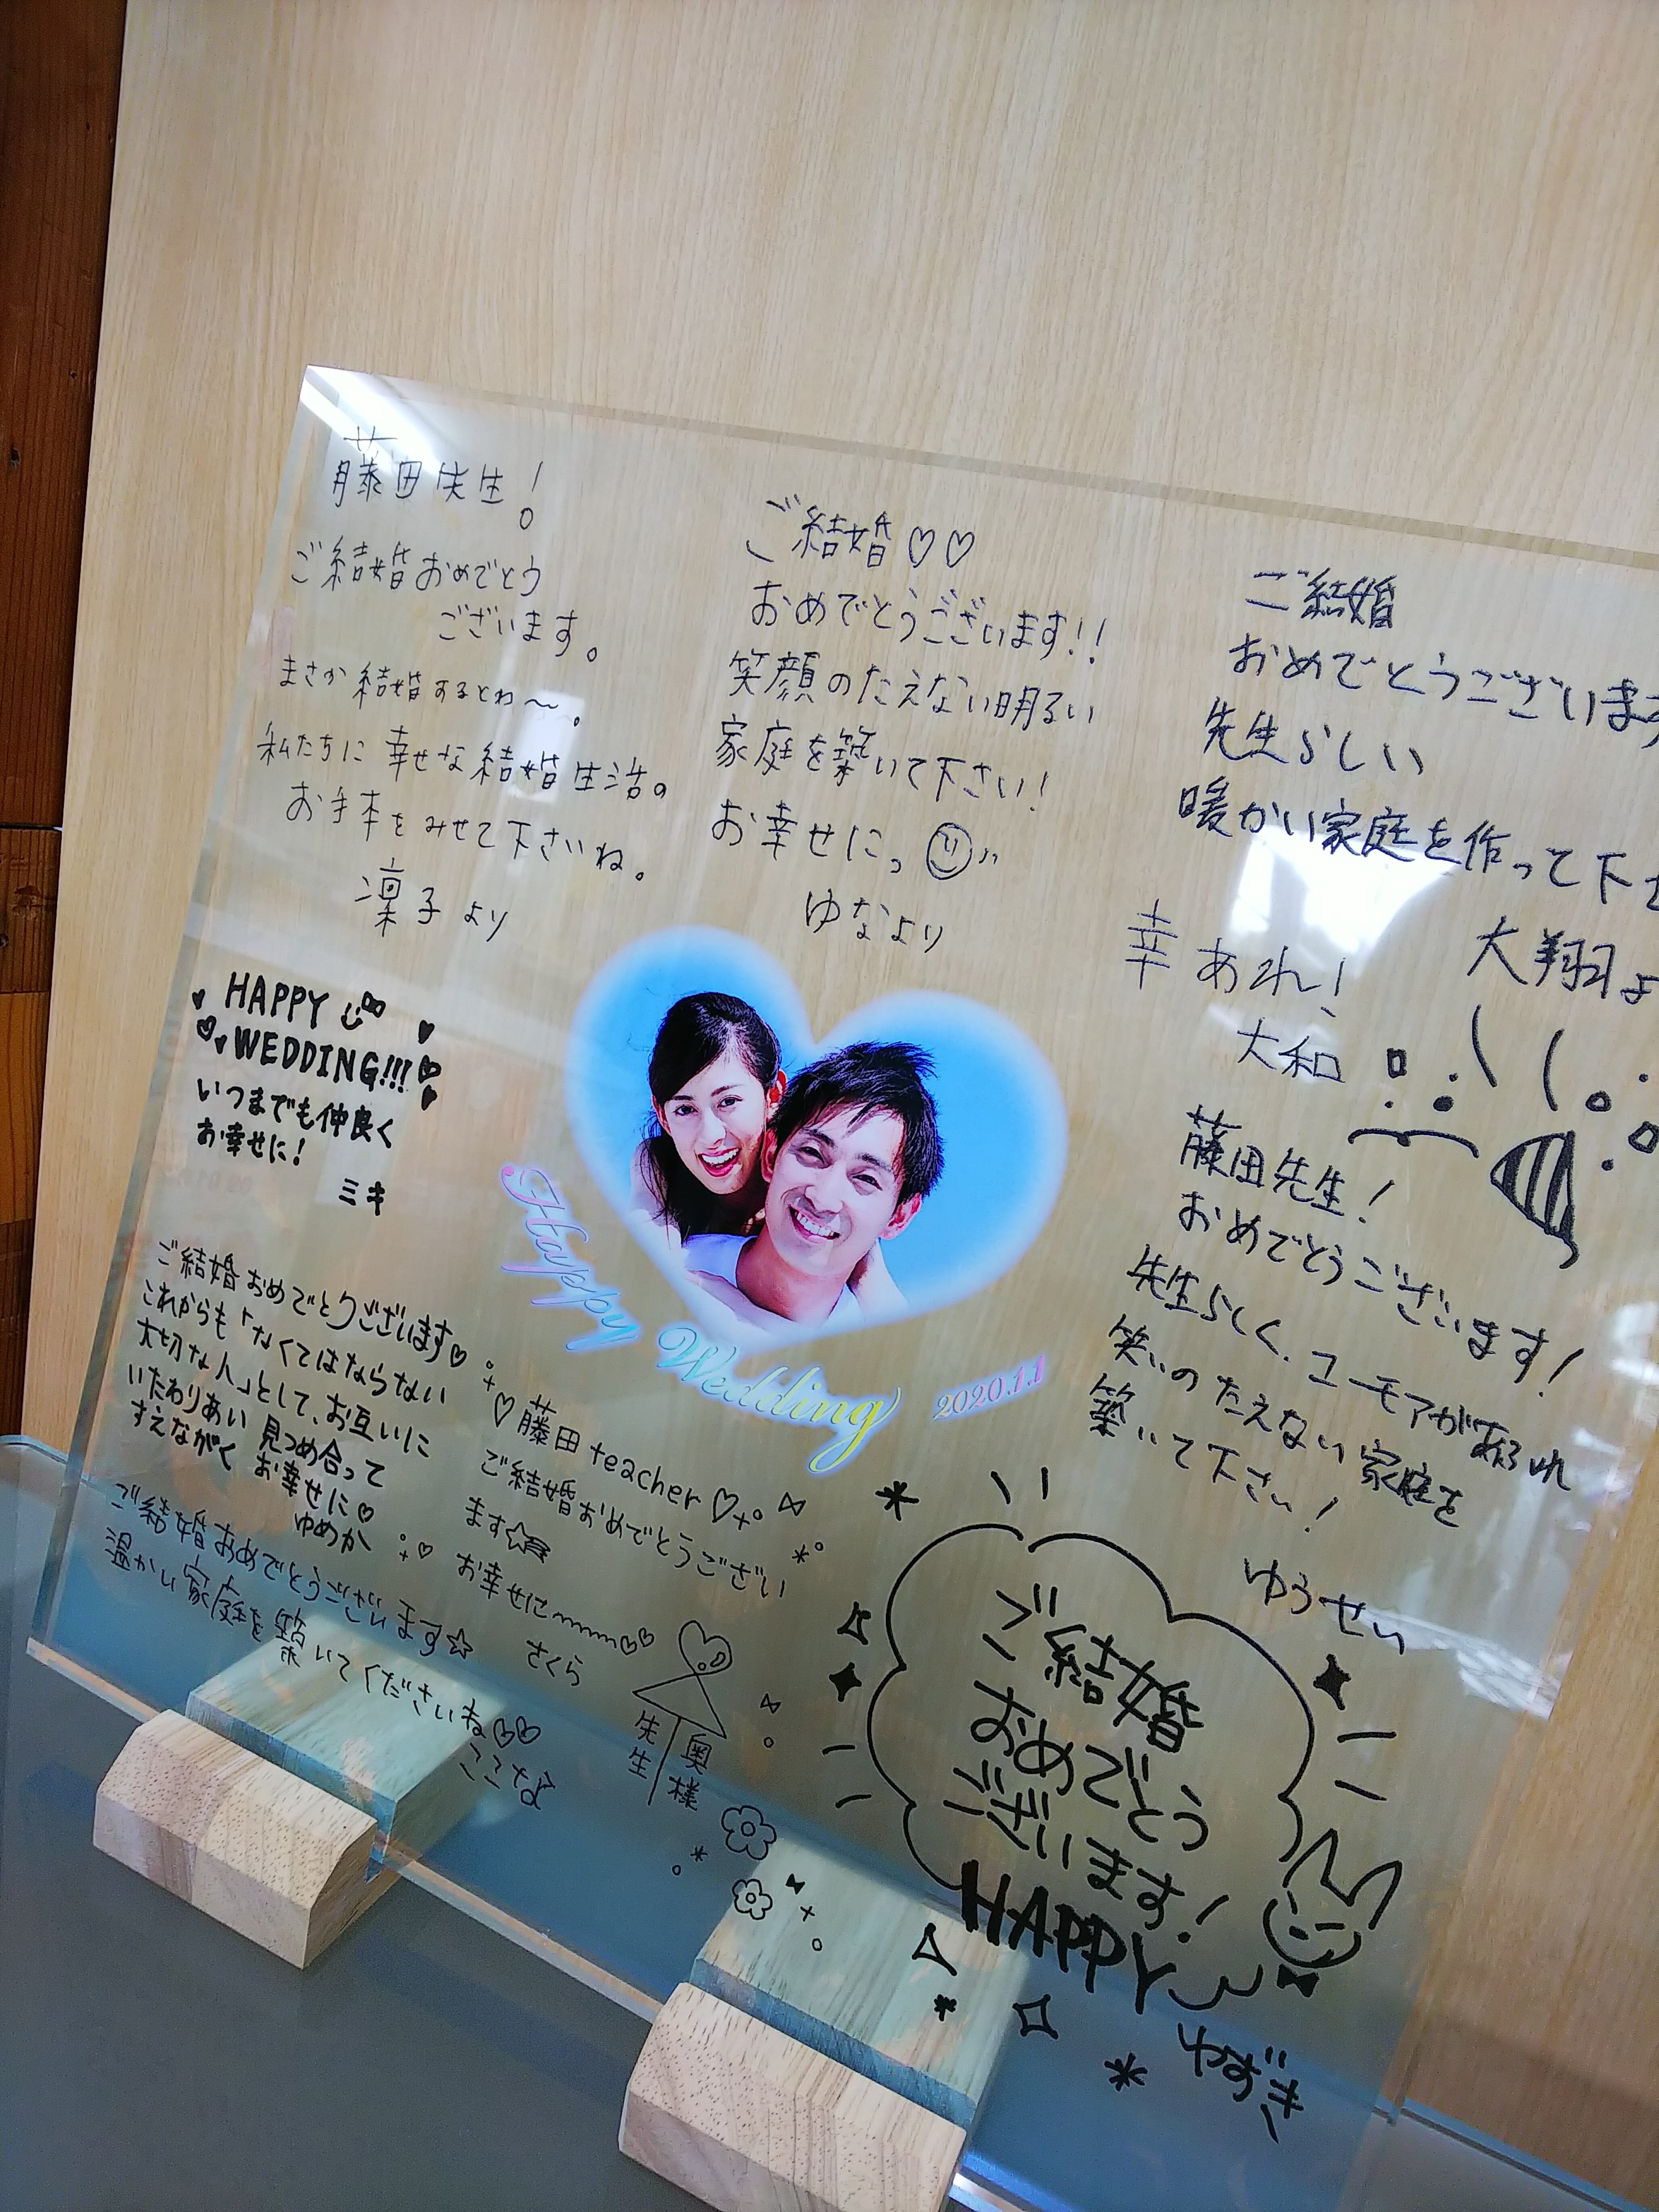 藤田先生!
ご結婚おめでとう
ございます。
まさか結婚するとわ〜。
私たちに幸せな結婚生活の
お手本をみせて下さいね。
凜子より
ご結婚♡♡
おめでとうございます!!
笑顔のたえない明るい
家庭を築いて下さい!
お幸せにっ
ゆなより
ご結婚
おめでとうございます
先生らしい
暖かい家庭を作って下さ
大翔よ
幸あれ!
大和
HAPPY
WEDDING!!!
いつまでも仲良く
お幸せに!
ミキ
Happy Wedding 2020.1.1
藤田先生!
おめでとうございます!
先生らしく、ユーモアが溢れ
笑いのたえない家庭を
築いて下さい!
ゆうせい
ご結婚おめでとうございます♡
これからも「なくてはならない
大切な人」として、お互いに
いたわりあい 見つめ合って
すえながく お幸せに♡
ゆめか
♡藤田teacher♡
ご結婚おめでとうござい
ます☆
お幸せに〜〜〜♡♡
さくら
先生
奥様
ご結婚おめでとうございます☆
温かい家庭を築いてくださいね♡♡
ここな
ご結婚
おめでとう
ございます!
HAPPY
ゆずき